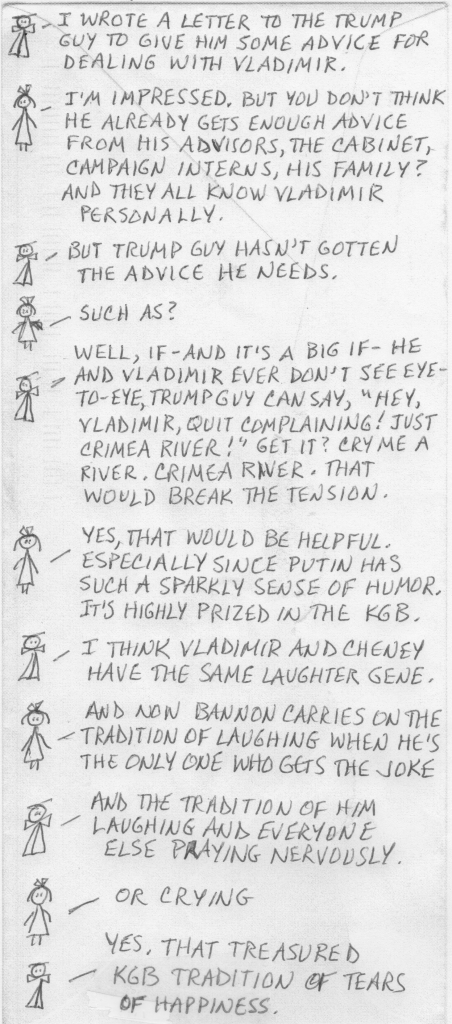 I WROTE A LETTER TO THE TRUMP
GUY TO GIVE HIM SOME ADVICE FOR
DEALING WITH VLADIMIR.
I'M IMPRESSED. BUT YOU DON'T THINK
HE ALREADY GETS ENOUGH ADVICE
FROM HIS ADVISORS, THE CABINET,
CAMPAIGN INTERNS, HIS FAMILY?
AND THEY ALL KNOW VLADIMIR
PERSONALLY.
BUT TRUMP GUY HASN'T GOTTEN
THE ADVICE HE NEEDS.
SUCH AS?
WELL, IF-AND IT'S A BIG IF- HE
AND VLADIMIR EVER DON'T SEE EYE-
TO-EYE, TRUMP GUY CAN SAY, "HEY,
VLADIMIR, QUIT COMPLAINING! JUST
CRIMEA RIVER!" GET IT? CRY ME A
RIVER. CRIMEA RIVER. THAT
WOULD BREAK THE TENSION.
YES, THAT WOULD BE HELPFUL.
ESPECIALLY SINCE PUTIN HAS
SUCH A SPARKLY SENSE OF HUMOR.
IT'S HIGHLY PRIZED IN THE KGB.
I THINK VLADIMIR AND CHENEY
HAVE THE SAME LAUGHTER GENE.
AND NOW BANNON CARRIES ON THE
TRADITION OF LAUGHING WHEN HE'S
THE ONLY ONE WHO GETS THE JOKE
AND THE TRADITION OF HIM
LAUGHING AND EVERYONE
ELSE PRAYING NERVOUSLY.
OR CRYING
YES, THAT TREASURED
KGB TRADITION OF TEARS
OF HAPPINESS.